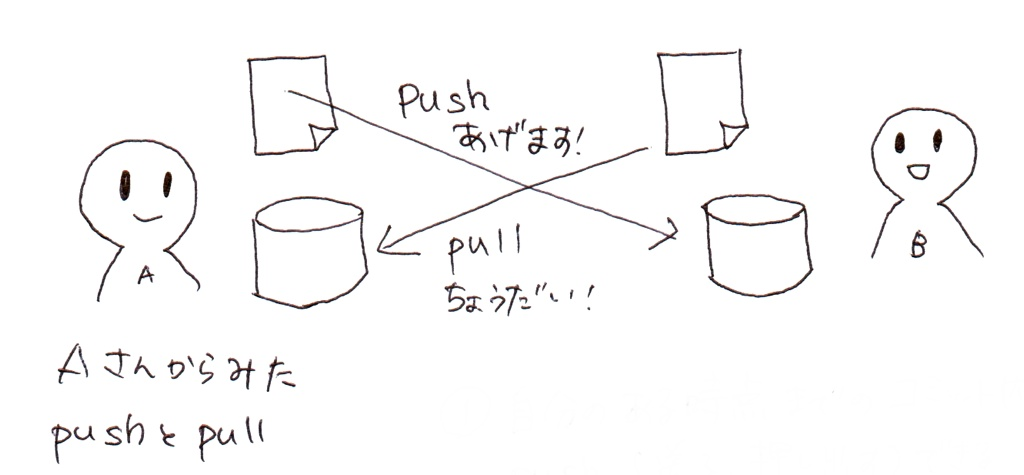 push
あげます!
A
B
pull
ちょうだい!
Aさんからみた
pushとpull